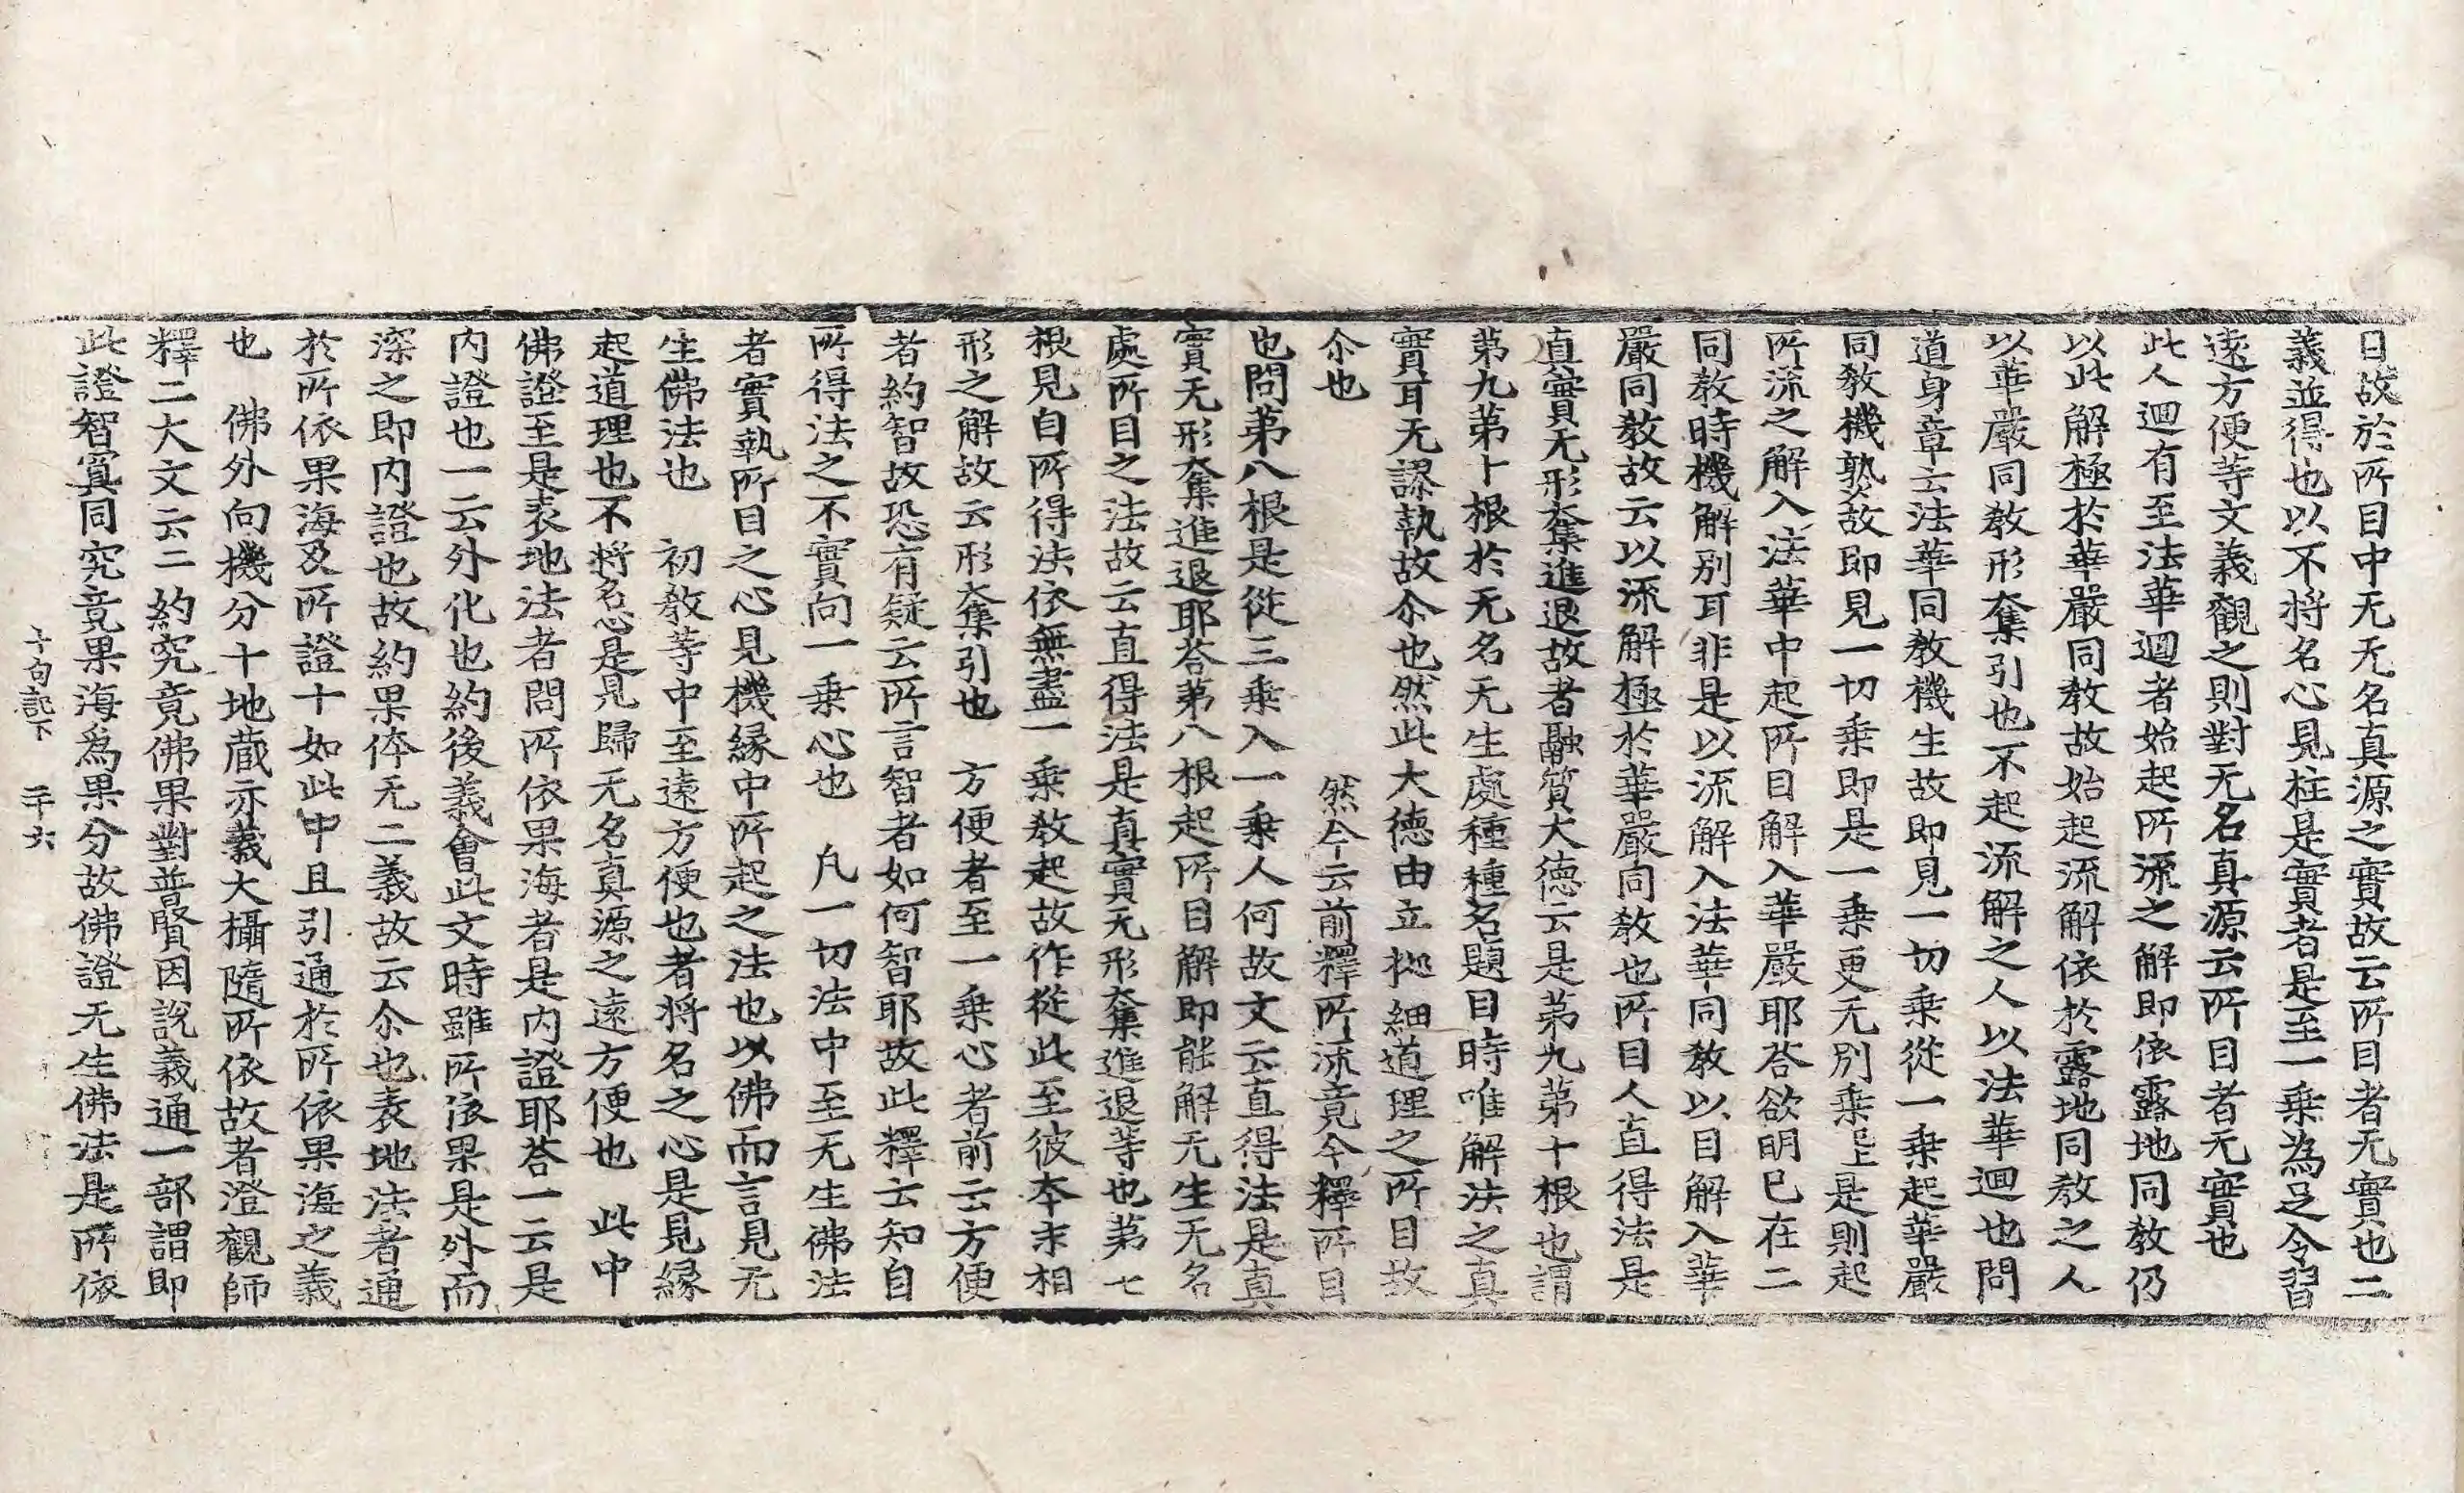 目故於所目中无无名真源之實故云所目者无實也二
義並得也以不將名心見柱是實者是至一乗為足令習
遠方便等文義觀之則對无名真源云所目者无實也
此人迴有至法華迴者始起所流之解即依露地同教仍
以此解極於華嚴同教故始起流解依於露地同教之人
以華嚴同教形奪引也不起流解之人以法華迴也問
道身章云法華同教機生故即見一切乗從一乗起華嚴
同教機熟故即見一切乗即是一乗更无別乗是則起
所流之解入法華中起所目解入華嚴耶荅欲明已在二
同教時機解別耳非是以流解入法華同教以目解入華
嚴同教故云以流解極於華嚴同教也所目人直得法是
真實无形奪進退故者融質大德云是苐九苐十根也謂
苐九苐十根於无名无生處種種名題目時唯解法之真
實耳无謬執故尒也然此大德由立拋細道理之所目故
尒也 然今云前釋所流竟今釋所目
也問苐八根是從三乗入一乗人何故文云直得法是真
實无形奪進退耶荅苐八根起所目解即能解无生无名
處所目之法故云直得法是真實无形奪進退等也苐七
根見自所得法依無盡一乗教起故作從此至彼本末相
形之解故云形奪引也 方便者至一乗心者前云方便
者約智故恐有疑云所言智者如何智耶故此釋云知自
所得法之不實向一乗心也 凡一切法中至无生佛法
者實執所目之心見機緣中所起之法也以佛而言見无
生佛法也 初教等中至遠方便也者將名之心是見緣
起道理也不將名心是見歸无名真源之遠方便也 此中
佛證至是表地法者問所依果海者是内證耶荅一云是
内證也一云外化也約後義會此文時雖所依果是外而
深之即内證也故約果体无二義故云尒也表地法者通
於所依果海及所證十如此中且引通於所依果海之義
也 佛外向機分十地蔵亦義大攝隨所依故者澄觀師
釋二大文云二約究竟佛果對普賢因說義通一部謂即
此證智冥同究竟果海爲果分故佛證无生佛法是所依
十句記下 二十六